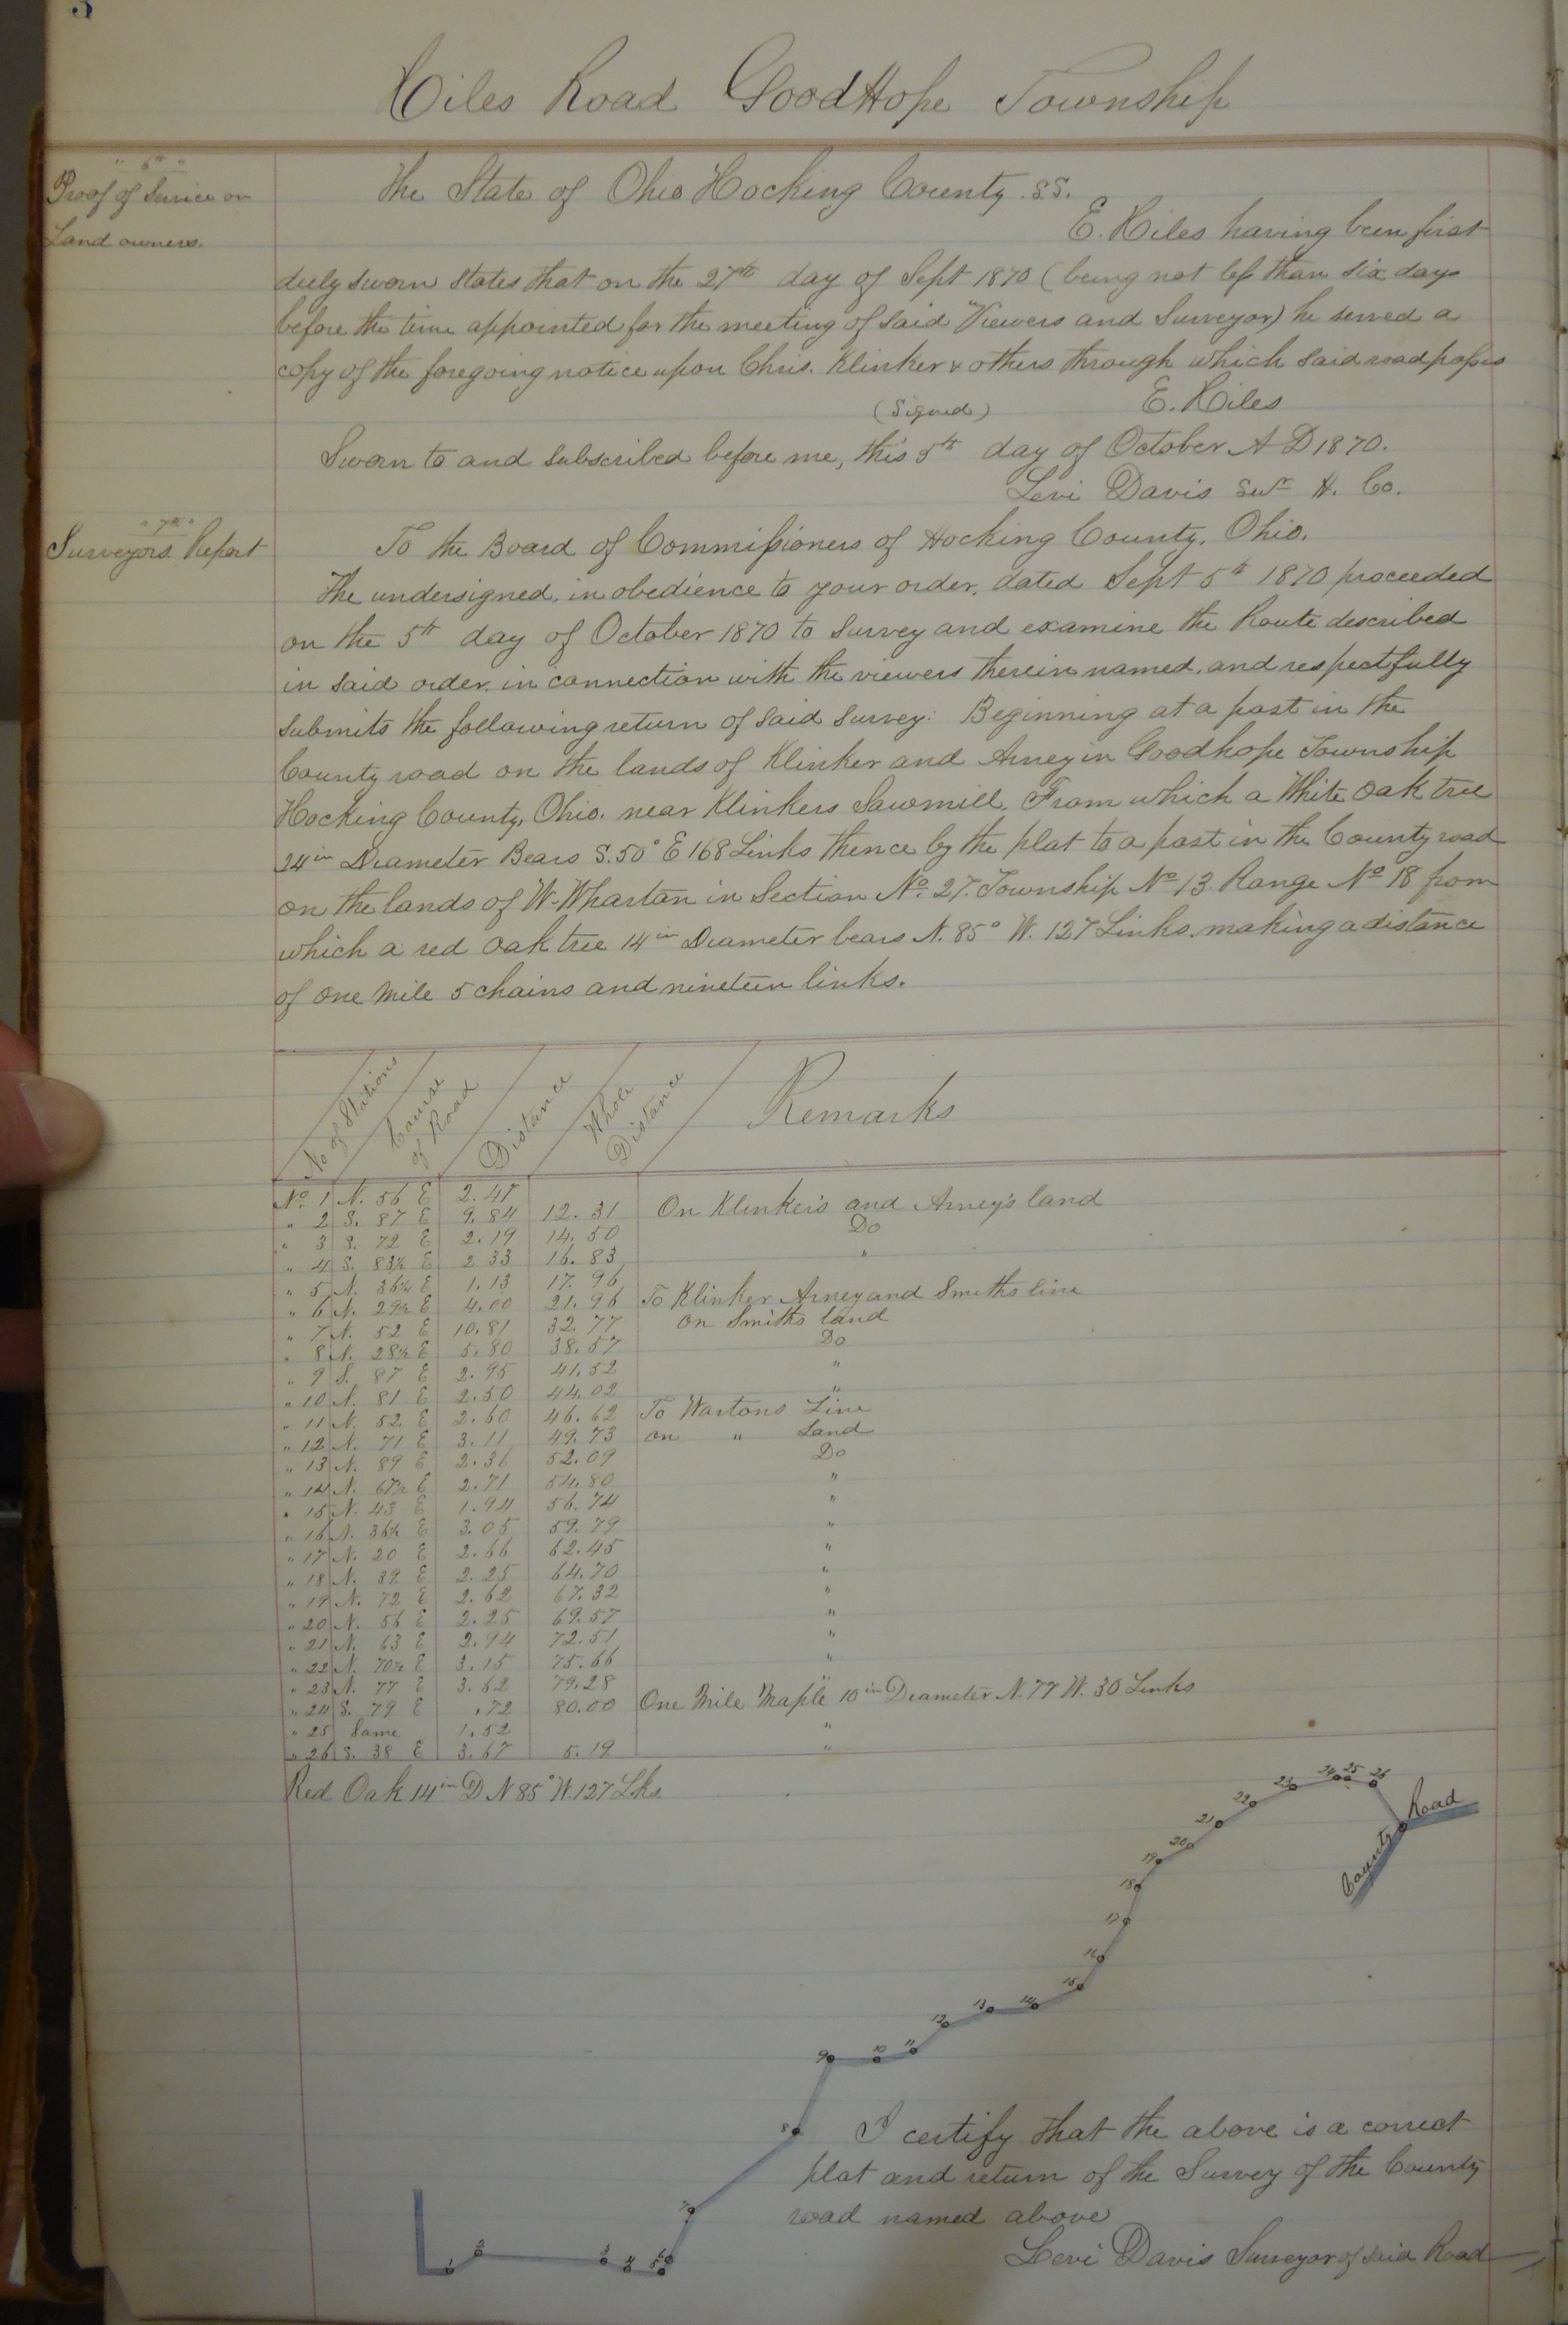 Hiles Road Good Hope Township
" 6th "
Proof of Service on
Land owners.
The State of Ohio Hocking County. S.S.
E. Hiles having been first
duly sworn states that on the 27th day of Sept 1870 (being not less than six days
before the time appointed for the meeting of said Viewers and Surveyor) he served a
copy of the foregoing notice upon Chris. Klinker & others through which said road passes
(Signed) E. Hiles
Sworn to and subscribed before me, this 5th day of October A D 1870.
Levi Davis Sur H. Co.
" 7th "
Surveyors Report
To the Board of Commissioners of Hocking County, Ohio.
The undersigned, in obedience to your order, dated Sept 5th 1870 proceeded
on the 5th day of October 1870 to Survey and examine the Route described
in said order, in connection with the viewers therein named, and respectfully
submits the following return of said survey: Beginning at a post in the
County road on the lands of Klinker and Arney in Goodhope Township
Hocking County, Ohio. near Klinkers Sawmill. From which a White Oak tree
24 in Diameter Bears S. 50° E 168 Links thence by the plat to a post in the County road
on the lands of W. Wharton in Section No. 27. Township No 13. Range No 18 from
which a red Oak tree 14 in Diameter bears N. 85° W. 127 Links. making a distance
of one mile 5 chains and nineteen links.
No of Stations Course of Road Distance Whole Distance Remarks
No. 1 N. 56 E 2.47
" 2 S. 87 E 9.84 12.31 On Klinker's and Arney's land
" 3 S. 72 E 2.19 14.50 Do
" 4 S. 83½ E 2 33 16.83 "
" 5 N. 36¼ E 1.13 17.96
" 6 N. 29½ E 4.00 21.96 To Klinker Arney and Smiths line
" 7 N. 52 E 10.81 32.77 On Smiths land
" 8 N. 28½ E 5.80 38.57 Do
" 9 S. 87 E 2.95 41.52 "
" 10 N. 81 E 2.50 44.02 "
" 11 N. 52 E 2.60 46.62 To Wartons Line
" 12 N. 71 E 3.11 49.73 on " Land
" 13 N. 89 E 2.36 52.09 Do
" 14 N. 67½ E 2.71 54.80 "
" 15 N. 43 E 1.94 56.74 "
" 16 N. 36½ E 3.05 59.79 "
" 17 N. 20 E 2.66 62.45 "
" 18 N. 39 E 2.25 64.70 "
" 19 N. 72 E 2.62 67.32 "
" 20 N. 56 E 2.25 69.57 "
" 21 N. 63 E 2.94 72.51 "
" 22 N. 70½ E 3.15 75.66 "
" 23 N. 77 E 3.62 79.28 "
" 24 S. 79 E .72 80.00 One Mile Maple 10 in Diameter N. 77 W. 30 Links
" 25 Same 1.52 "
" 26 S. 38 E 3.67 5.19 "
Red Oak 14 in D N 85° W. 127 Lks.
24 25 26
23
22
21
20
19
18
17
16
15
14
13
12
11
10
9
8
7
6
5
4
3
2
1
County Road
I certify that the above is a correct
plat and return of the Survey of the County
road named above
Levi Davis Surveyor of said Road